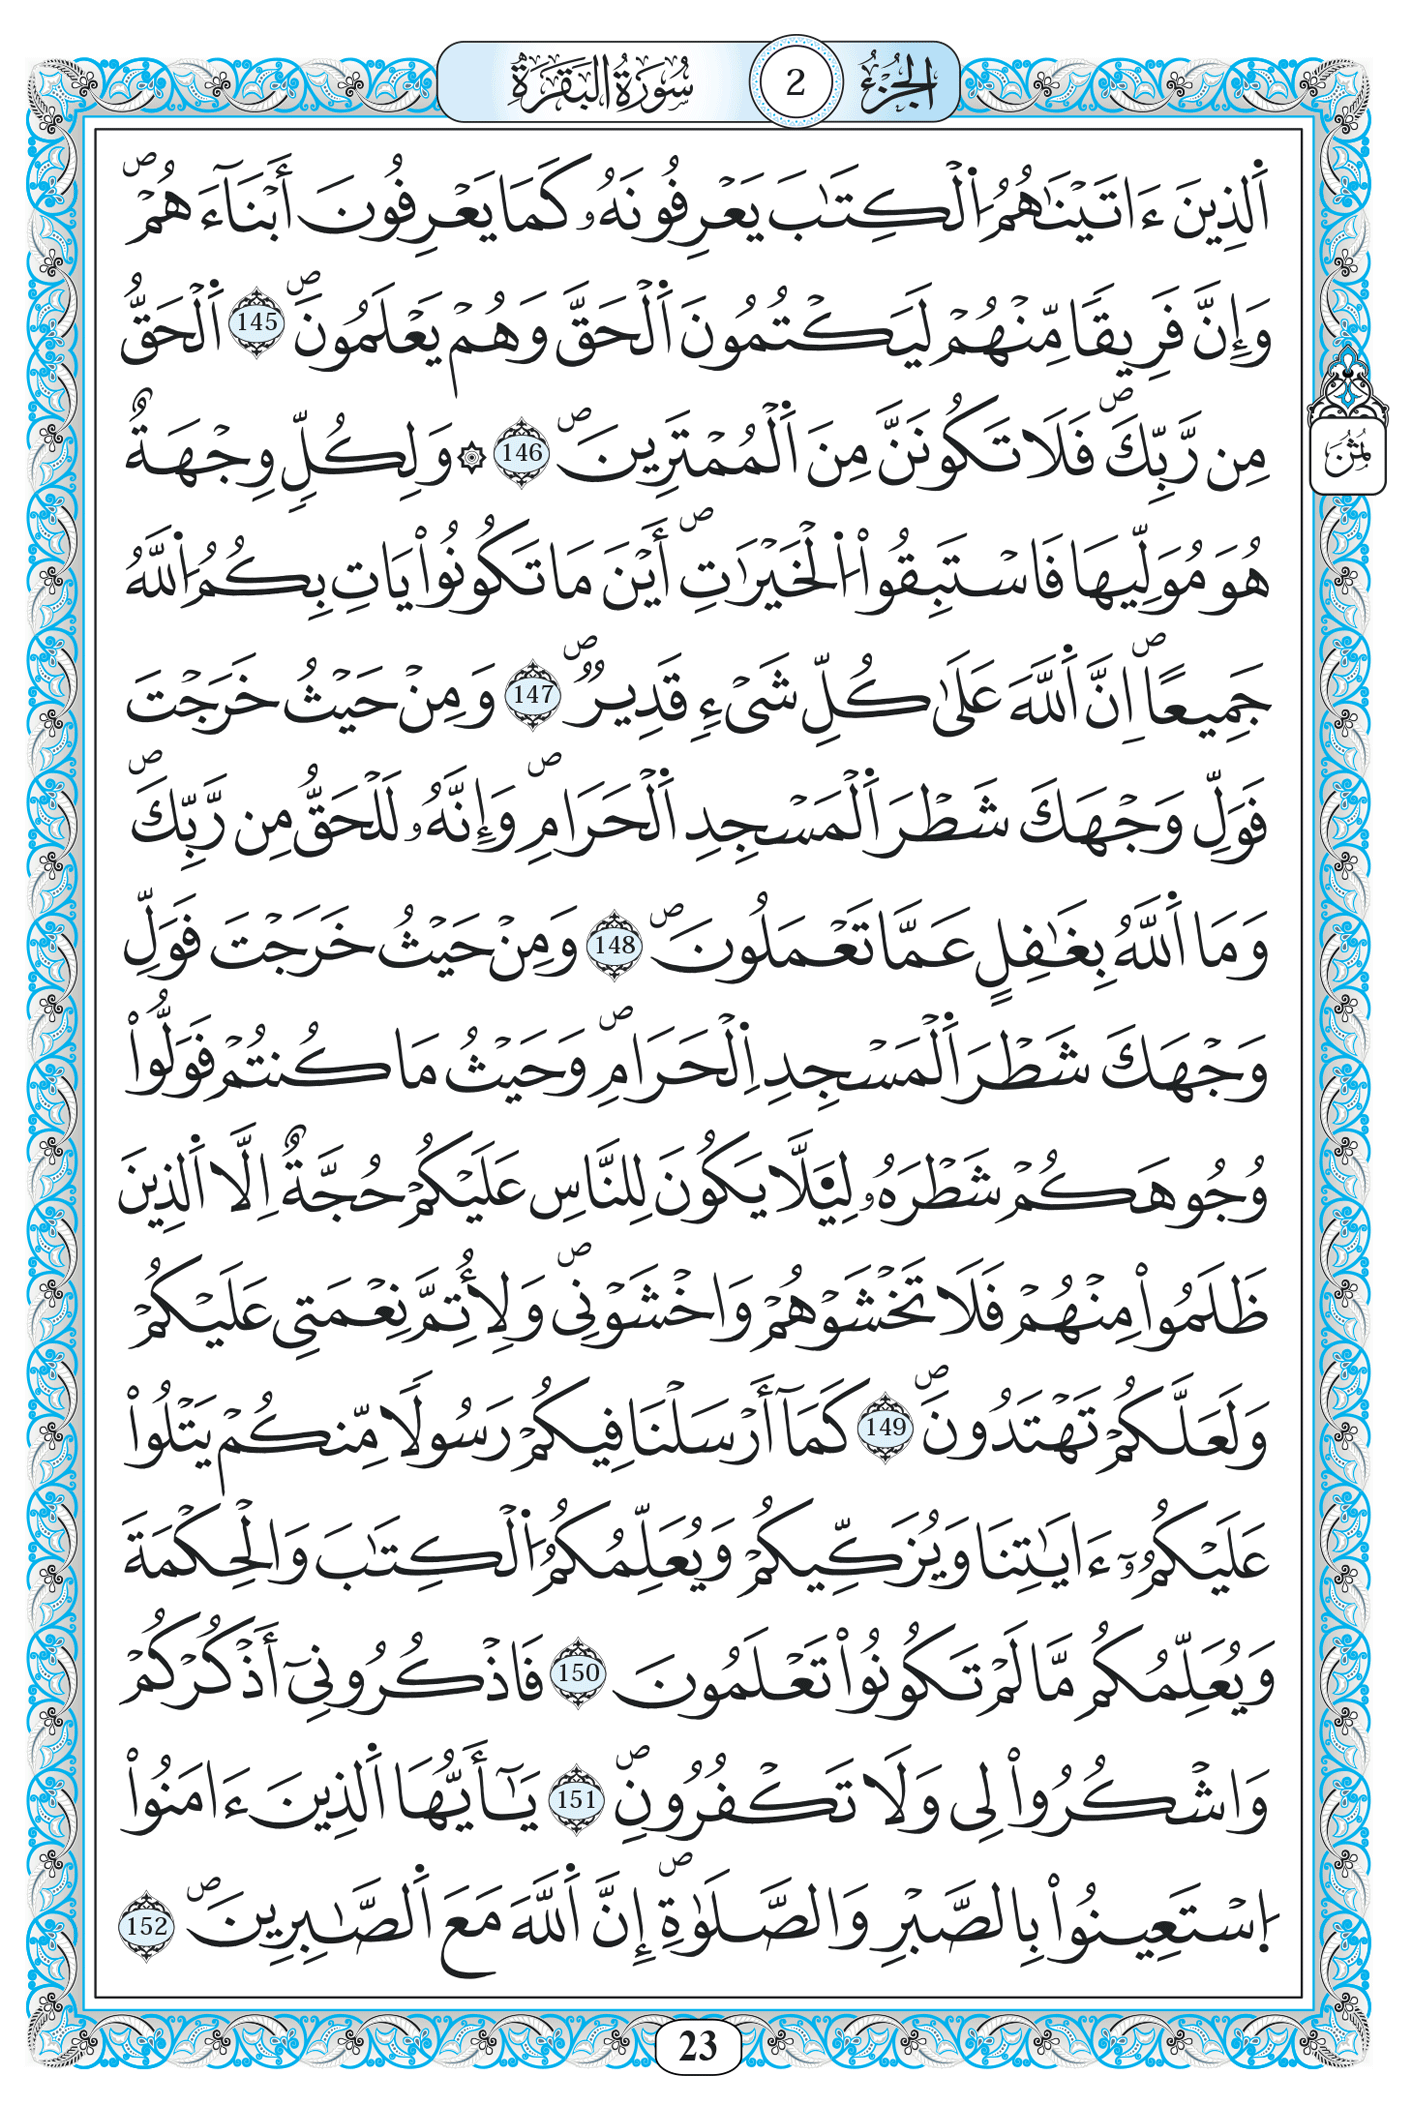 الجزء 2 سورة البقرة
اَ۬لذِينَ ءَاتَيْنَٰهُمُ اُ۬لْكِتَٰبَ يَعْرِفُونَهُۥ كَمَا يَعْرِفُونَ أَبْنَآءَهُمْۖ
وَإِنَّ فَرِيقاٗ مِّنْهُمْ لَيَكْتُمُونَ اَ۬لْحَقَّ وَهُمْ يَعْلَمُونَۖ 145 اَ۬لْحَقُّ
مِن رَّبِّكَۖ فَلَا تَكُونَنَّ مِنَ اَ۬لْمُمْتَرِينَۖ 146 ۞ وَلِكُلّٖ وِجْهَةٌ
ثمن
هُوَ مُوَلِّيهَا فَاسْتَبِقُواْ اُ۬لْخَيْرَٰتِۖ أَيْنَ مَا تَكُونُواْ يَاتِ بِكُمُ اُ۬للَّهُ
جَمِيعاًۖ اِنَّ اَ۬للَّهَ عَلَىٰ كُلِّ شَےْءٖ قَدِيرٞۖ 147 وَمِنْ حَيْثُ خَرَجْتَ
فَوَلِّ وَجْهَكَ شَطْرَ اَ۬لْمَسْجِدِ اِ۬لْحَرَامِۖ وَإِنَّهُۥ لَلْحَقُّ مِن رَّبِّكَۖ
وَمَا اَ۬للَّهُ بِغَٰفِلٍ عَمَّا تَعْمَلُونَۖ 148 وَمِنْ حَيْثُ خَرَجْتَ فَوَلِّ
وَجْهَكَ شَطْرَ اَ۬لْمَسْجِدِ اِ۬لْحَرَامِۖ وَحَيْثُ مَا كُنتُمْ فَوَلُّواْ
وُجُوهَكُمْ شَطْرَهُۥ لِيَ۬لَّا يَكُونَ لِلنَّاسِ عَلَيْكُمْ حُجَّةٌ اِلَّا اَ۬لذِينَ
ظَلَمُواْ مِنْهُمْ فَلَا تَخْشَوْهُمْ وَاخْشَوْنِےۖ وَلِأُتِمَّ نِعْمَتِے عَلَيْكُمْ
وَلَعَلَّكُمْ تَهْتَدُونَۖ 149 كَمَآ أَرْسَلْنَا فِيكُمْ رَسُولاٗ مِّنكُمْ يَتْلُواْ
عَلَيْكُمُۥٓ ءَايَٰتِنَا وَيُزَكِّيكُمْ وَيُعَلِّمُكُمُ اُ۬لْكِتَٰبَ وَالْحِكْمَةَ
وَيُعَلِّمُكُم مَّا لَمْ تَكُونُواْ تَعْلَمُونَ 150 فَاذْكُرُونِےٓ أَذْكُرْكُمْ
وَاشْكُرُواْ لِے وَلَا تَكْفُرُونِۖ 151 يَٰٓأَيُّهَا اَ۬لذِينَ ءَامَنُواْ
اُ۪سْتَعِينُواْ بِالصَّبْرِ وَالصَّلَوٰةِۖ إِنَّ اَ۬للَّهَ مَعَ اَ۬لصَّٰبِرِينَۖ 152
23